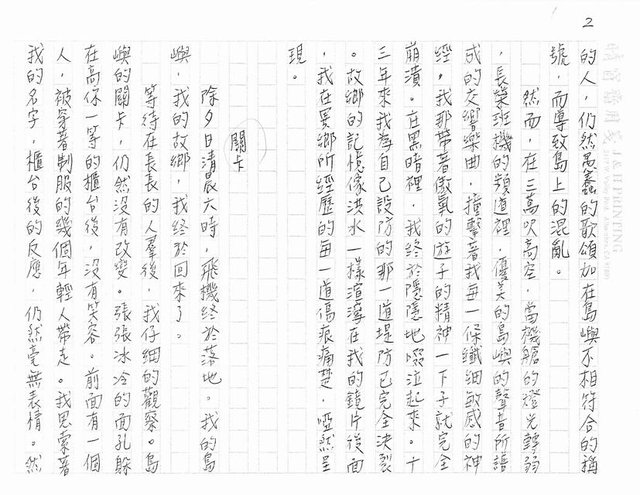 2
的人，仍然愚蠢的歌頌加在島嶼不相符合的稱
號，而導致島上的混亂。
然而，在三萬呎高空，當機艙的燈光轉弱
，長榮班機的頻道裡，優美的島嶼的聲音所譜
成的交響樂曲，撞擊著我每一條纖細敏感的神
經。我那帶著傲氣的遊子的精神一下子就完全
崩潰。在黑暗裡，我終於隱隱地啜泣起來。十
三年來我為自己設防的那一道堤防已完全決裂
。故鄉的記憶像洪水一樣渲瀉在我的鏡片後面
，我在異鄉所經歷的每一道傷痕痛楚，啞然呈
現。
關卡
除夕日清晨六時，飛機終於落地。我的島
嶼，我的故鄉，我終於回來了。
等待在長長的人羣後，我仔細的觀察。島
嶼的關卡，仍然沒有改變。張張冰冷的面孔躲
在高你一等的櫃台後，沒有笑容。前面有一個
人，被穿著制服的幾個年輕人帶走。我思索著
我的名字，櫃台後的反應，仍然毫無表情。然